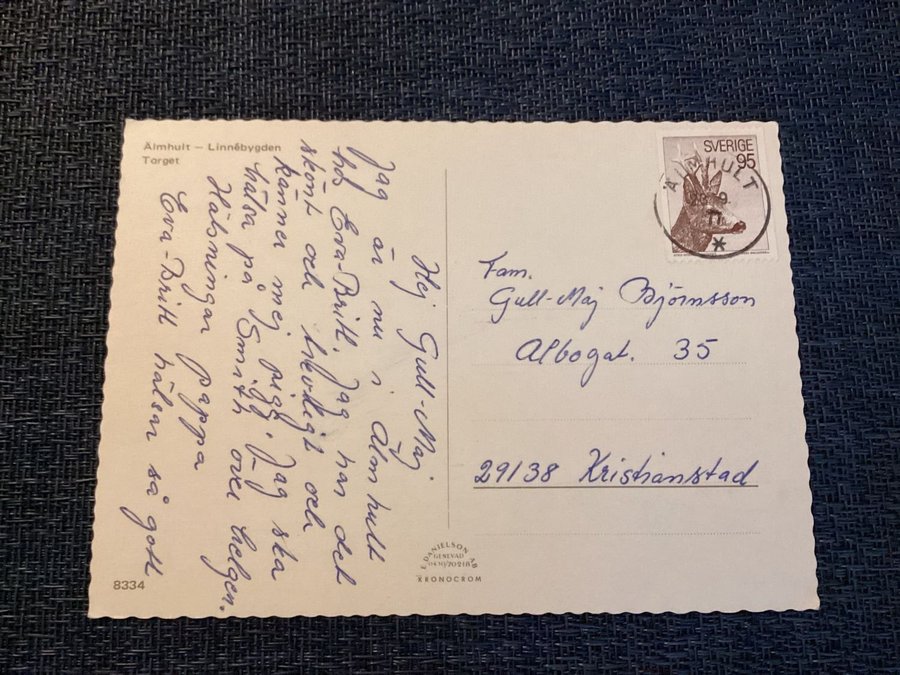 Älmhult – Linnébygden
Torget
Hej Gull-Maj
Jag är nu i Älmhult
hos Eva-Britt. Jag har det
skönt och trevligt och
känner mej pigg. Jag ska
hälsa på Smith över helgen.
Hälsningar pappa
Eva-Britt hälsar så gott
8334
E. DANIELSON AB
GENEVAD
0430/70218
KRONOCROM
SVERIGE
95
ÄLMHULT
Fam.
Gull-Maj Björnsson
Albogat. 35
29138 Kristianstad